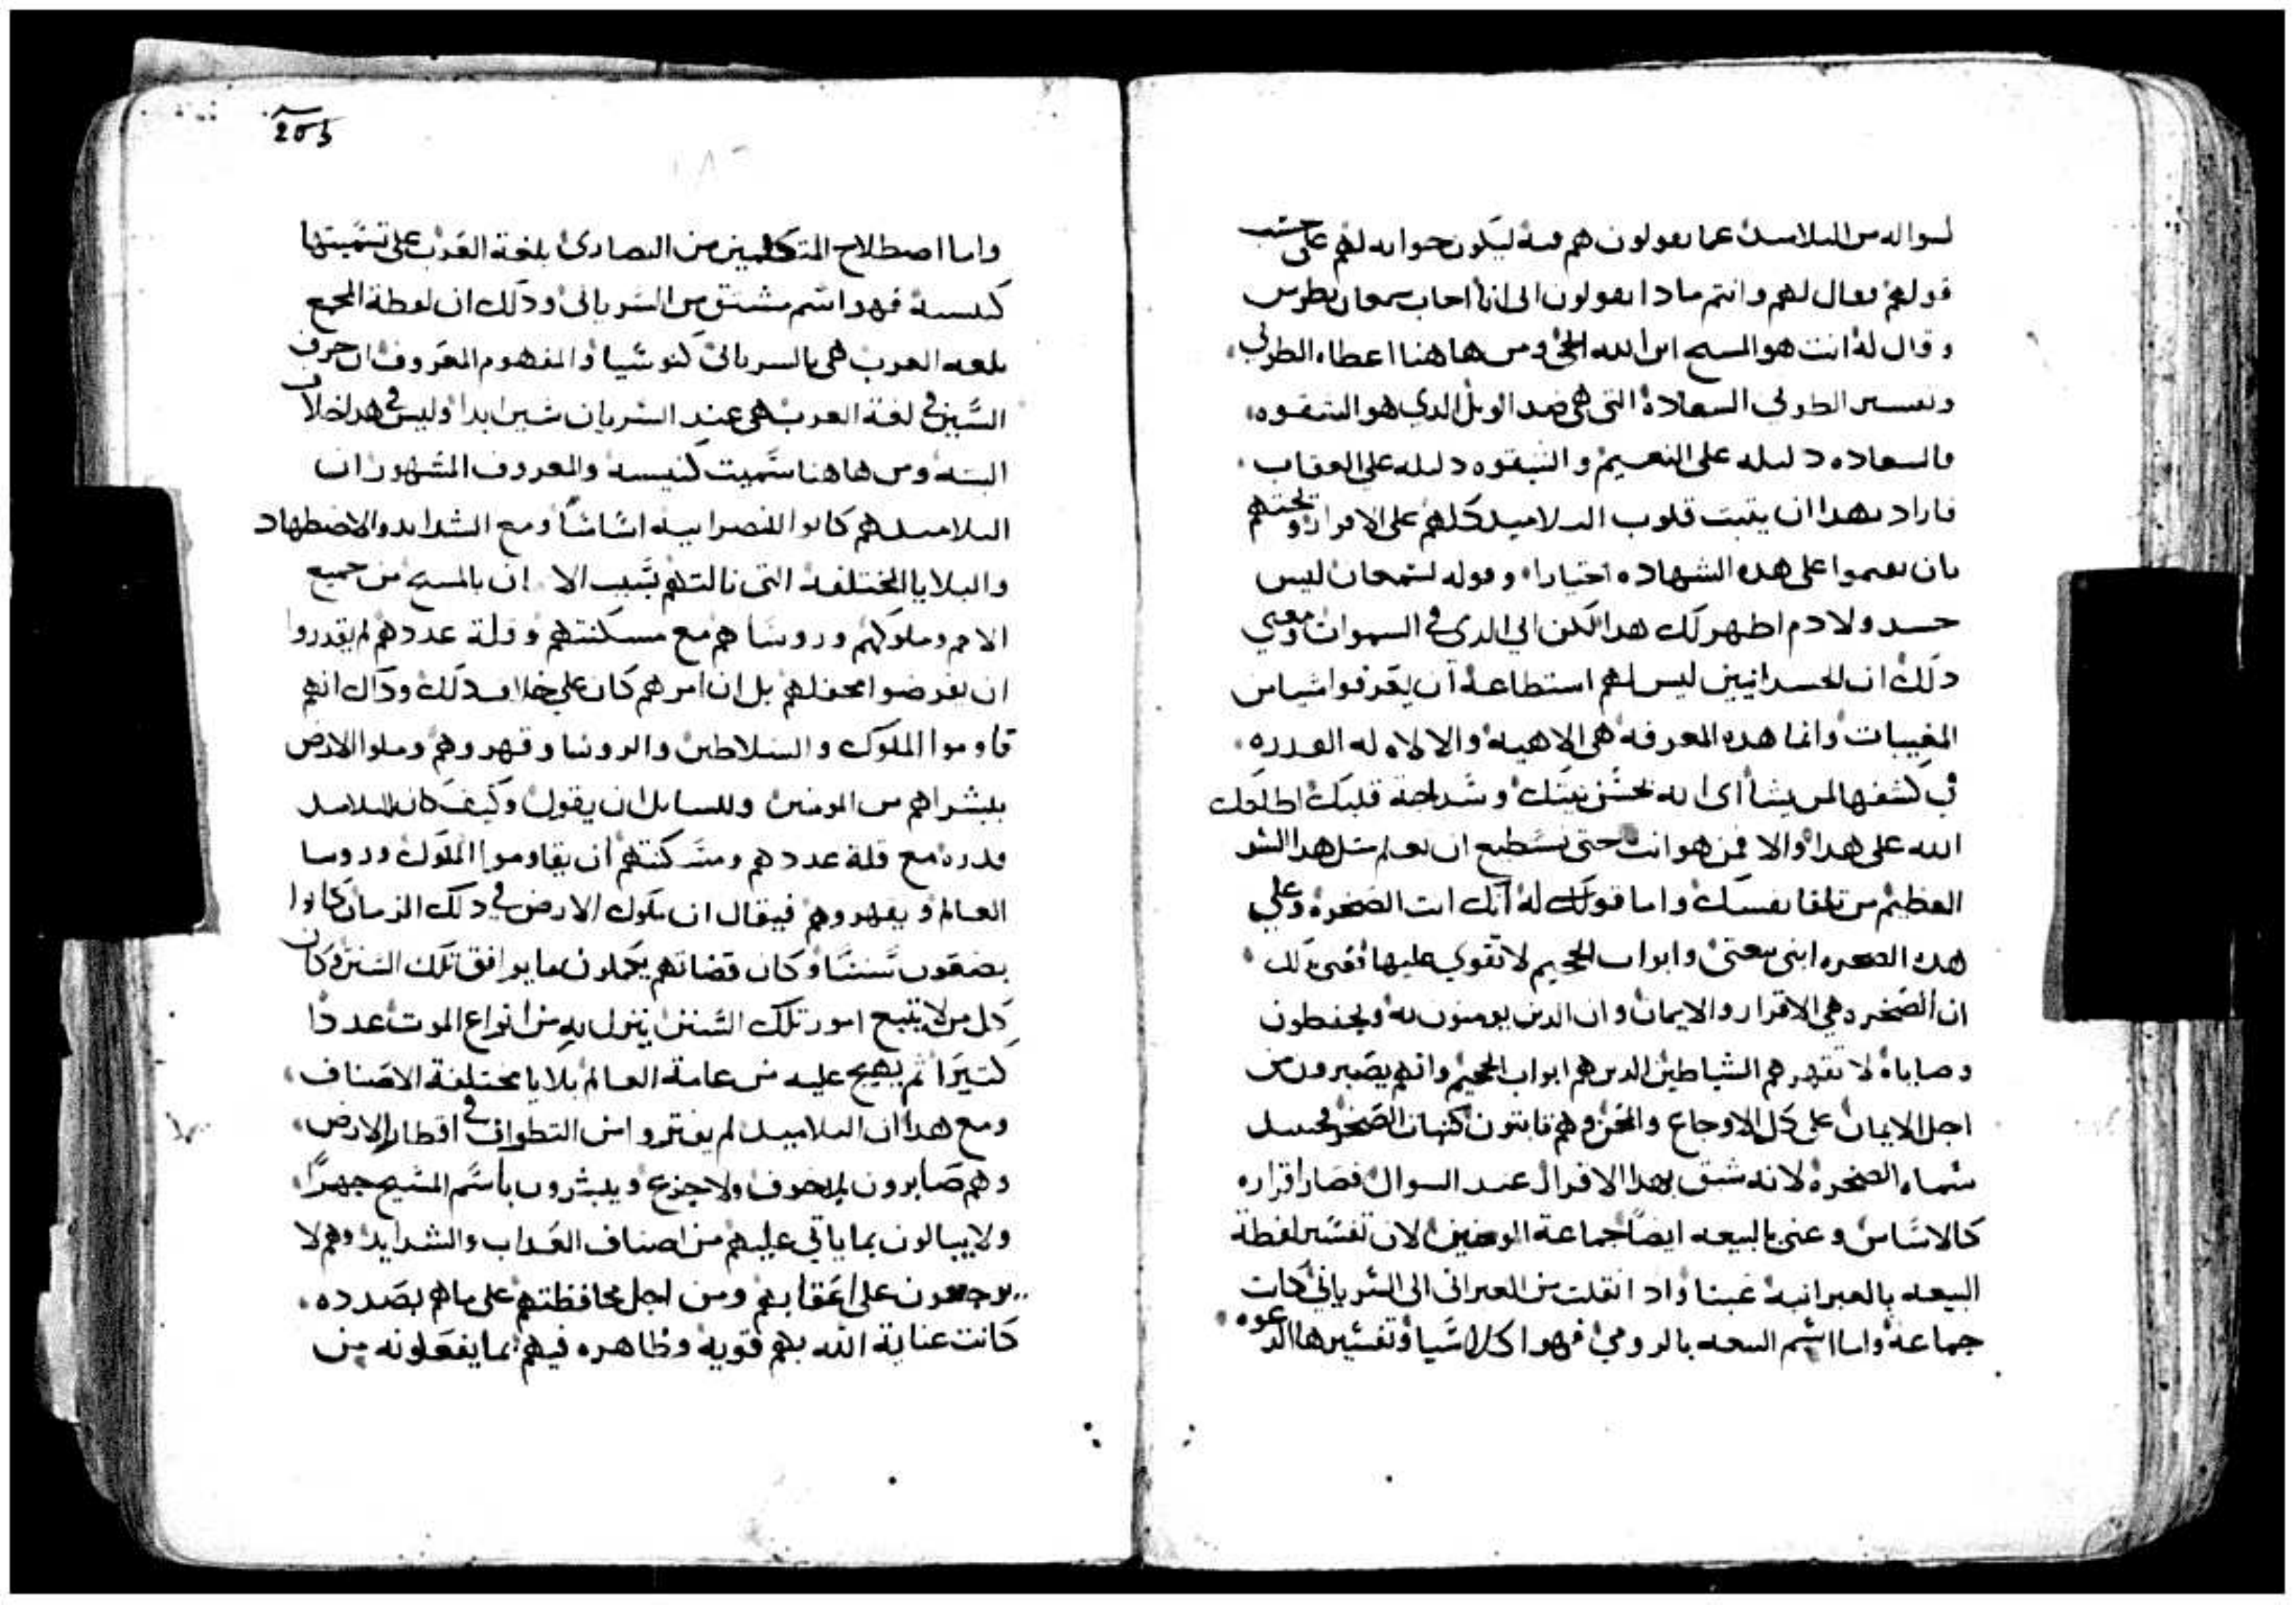 لسواله من التلاميذ عما يقولون هم فيه ليكون جوابه لهم على حسب
قولهم فقال لهم وانتم مادا تقولون انى انا اجاب سمعان بطرس
وقال له انت هو المسيح ابن الله الحي ومن هاهنا اعطاه الطوبي
وتفسير الطوبي السعادة التى هى ضد الويل الدي هو الشقوه
فالسعاده دليله على النعيم والشقوه دليله على العقاب
فاراد بهدا ان يثبت قلوب التلاميد كلهم على الاقرار ويحتهم
بان يقيموا على هده الشهاده اختيارا وقوله لسمعان ليس
جسد ولا دم اظهر لك هدا لكن ابي الدى في السموات ومعني
دلك ان الجسدانيين ليس لهم استطاعة ان يعرفوا شيا من
المغيبات وانما هده المعرفه هى الاهيه والالاه له القدره
في كشفها لمن يشا اى انه لحسن نيتك وسداجة قلبك اطلعك
الله على هدا والا فمن هو انت حتى تستطيع ان تعلم متل هدا السر
العظيم من تلقا نفسك واما قولك له انك انت الصخره وعلي
هده الصخره ابنى بيعتى وابواب الجحيم لا تقوي عليها فعنى بدلك
ان الصخره هي الاقرار والايمان وان الدين يومنون به ويحفظون
وصاياه لا تقهرهم الشياطين الدين هم ابواب الجحيم وانهم يصبرون من
اجل الايمان على كل الاوجاع والمحن وهم تابتون كتبات الصخر فحينيد
سماه الصخره لانه سبق بهدا الاقرار عند السوال فصار اقراره
كالاساس وعنى بالبيعه ايضا جماعة المومنين لان تفسير لفظة
البيعه بالعبرانية غبتا واد انقلت من العبرانى الى السريانى كانت
جماعة واما اسم البيعه بالرومي فهو اكلاسيا وتفسيرها الدعوه
205
واما اصطلاح المتكلمين من النصارى بلغة العرب على تسميتها
كنيسة فهو اسم مشتق من السريانى ودلك ان لفظة المجمع
بلغه العرب هى بالسريانى كنوشيا والمفهوم المعروف ان حرف
السين في لغة العرب هى عند السريان شين ابدا وليس في هدا خلاف
البته ومن هاهنا سميت كنيسه والمعروف المشهور ان
التلاميد هم كانوا للنصرانيه اساسا ومع الشدايد والاضطهاد
والبلايا المختلفه التى نالتهم بسبب الايمان بالمسيح من جميع
الامم وملوكهم وروساهم مع مسكنتهم وقلة عددهم لم يقدروا
ان يقرضوا محفلهم بل ان امرهم كان على خلاف دلك وداك انهم
قاوموا الملوك والسلاطين والروسا وقهروهم وملوا الارض
ببشراهم من المومنين وللسايل ان يقول وكيف كان للتلاميد
قدره مع قلة عددهم ومسكنتهم ان يقاوموا الملوك وروسا
العالم ويقهروهم فيقال ان ملوك الارض في دلك الزمان كانوا
يضعون سننا وكان قضاتهم يحكمون بما يوافق تلك السنن وكان
كل من لا يتبع امور تلك السنن ينزل به من انواع الموت عددا
كتيرا تم يهيج عليه من عامة العالم بلايا مختلفة الاصناف
ومع هدا ان التلاميد لم يفتروا من التطواف في اقطار الارض
وهم صابرون بلا خوف ولا جزع ويبشرون باسم المسيح جهرا
ولا يبالون بما ياتي عليهم من اصناف العداب والشدايد وهم لا
يرجعون على اعقابهم ومن اجل محافظتهم على ما هم بصدده
كانت عناية الله بهم قوية وظاهره فيهم بما يفعلونه من